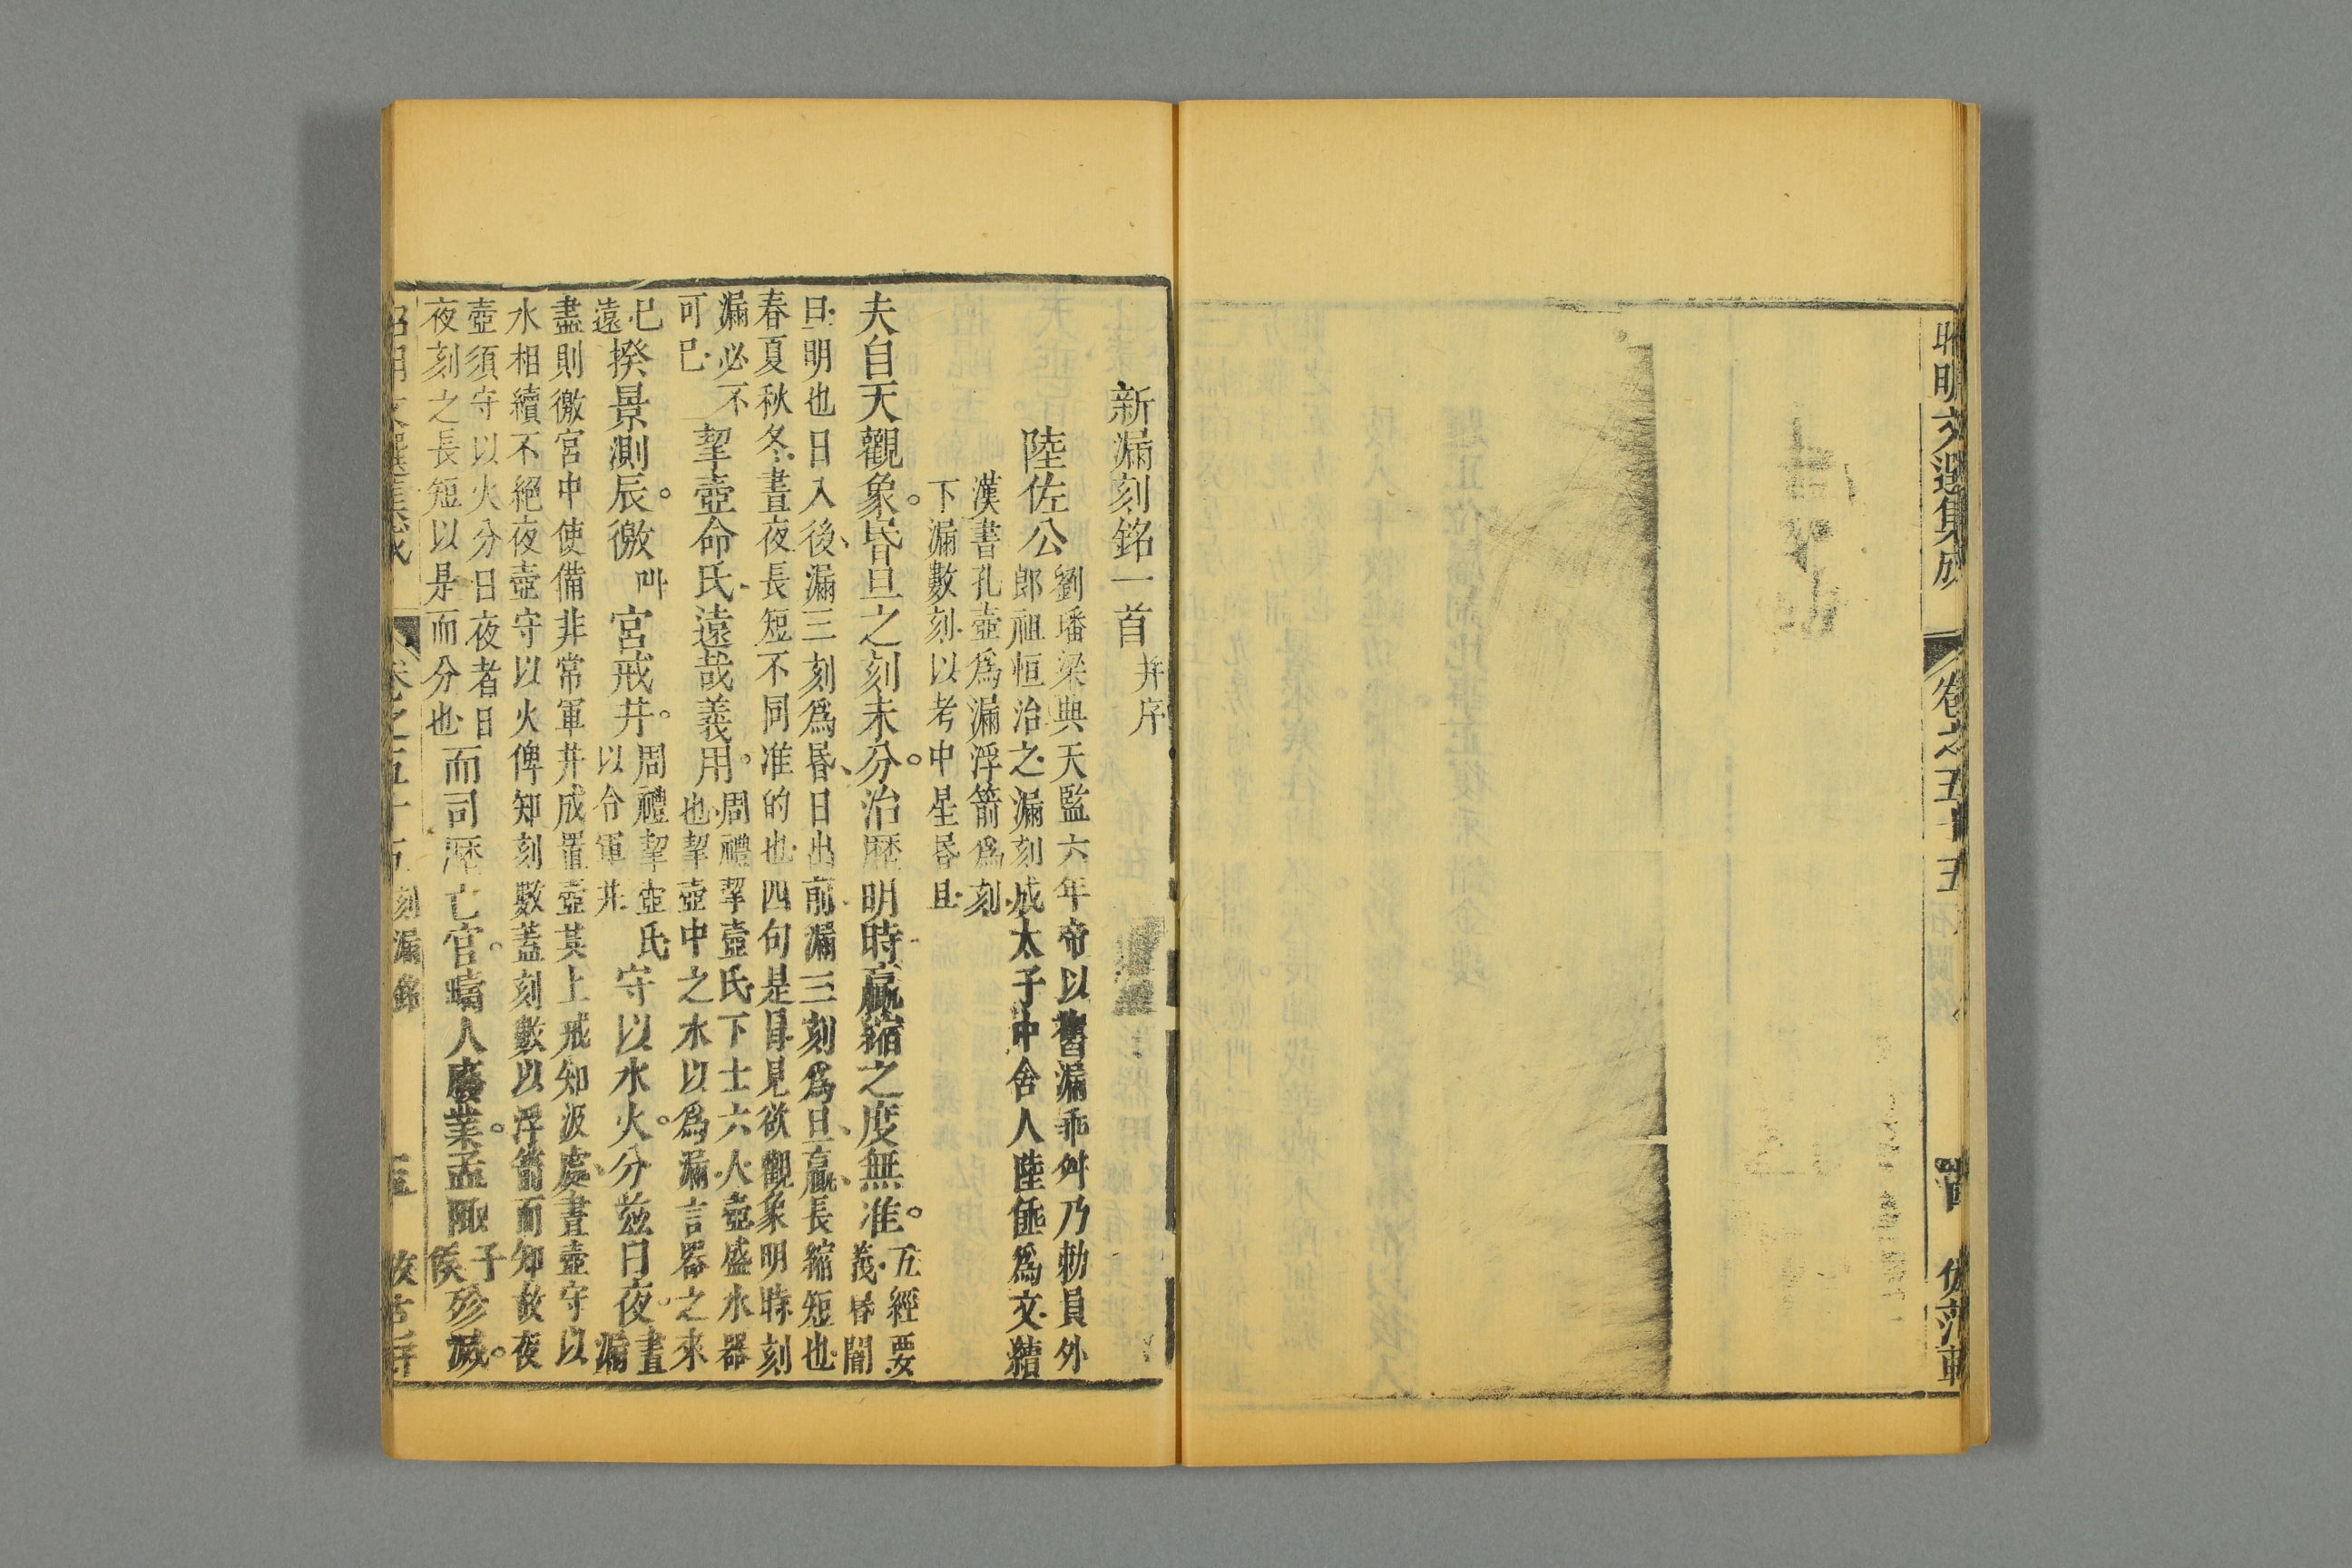 昭明文選集成 卷之五十五 石闕銘 仿范軒
新漏刻銘一首 并序
陸佐公 劉璠梁典天監六年帝以舊漏乖舛乃勅員外
郎祖恒治之漏刻成太子中舍人陸倕爲文續
漢書孔壺爲漏浮箭爲刻
下漏數刻以考中星昏旦
夫自天觀象。昏旦之刻未分。治歷明時。赢縮之度無准。 五經要
義昏闇
旦明也日入後漏三刻爲昏、日出前漏三刻爲旦、赢長縮短也
春夏秋冬晝夜長短不同准的也四句是目見欲觀象明時刻
漏必不
可已 挈壺命氏遠哉義用。 周禮挈壺氏下士六人壺盛水器
也挈壺中之水以爲漏言器之來
已
遠 揆景測辰。徼 叫 宮戒井。 周禮挈壺氏
以令軍井 守以水火。分兹日夜 晝
漏
盡則徼宮中使備非常軍井成置壺其上戒知汲處、晝壺守以
水相續不絕夜壺守以火俾知刻數蓋刻數以浮箭而知故夜
壺須守以火分日夜者日
夜刻之長短以是而分也 而司歷亡官。疇人廢業。孟陬 子
侯 殄滅。
昭明文選集成 卷之五十五 刻漏銘